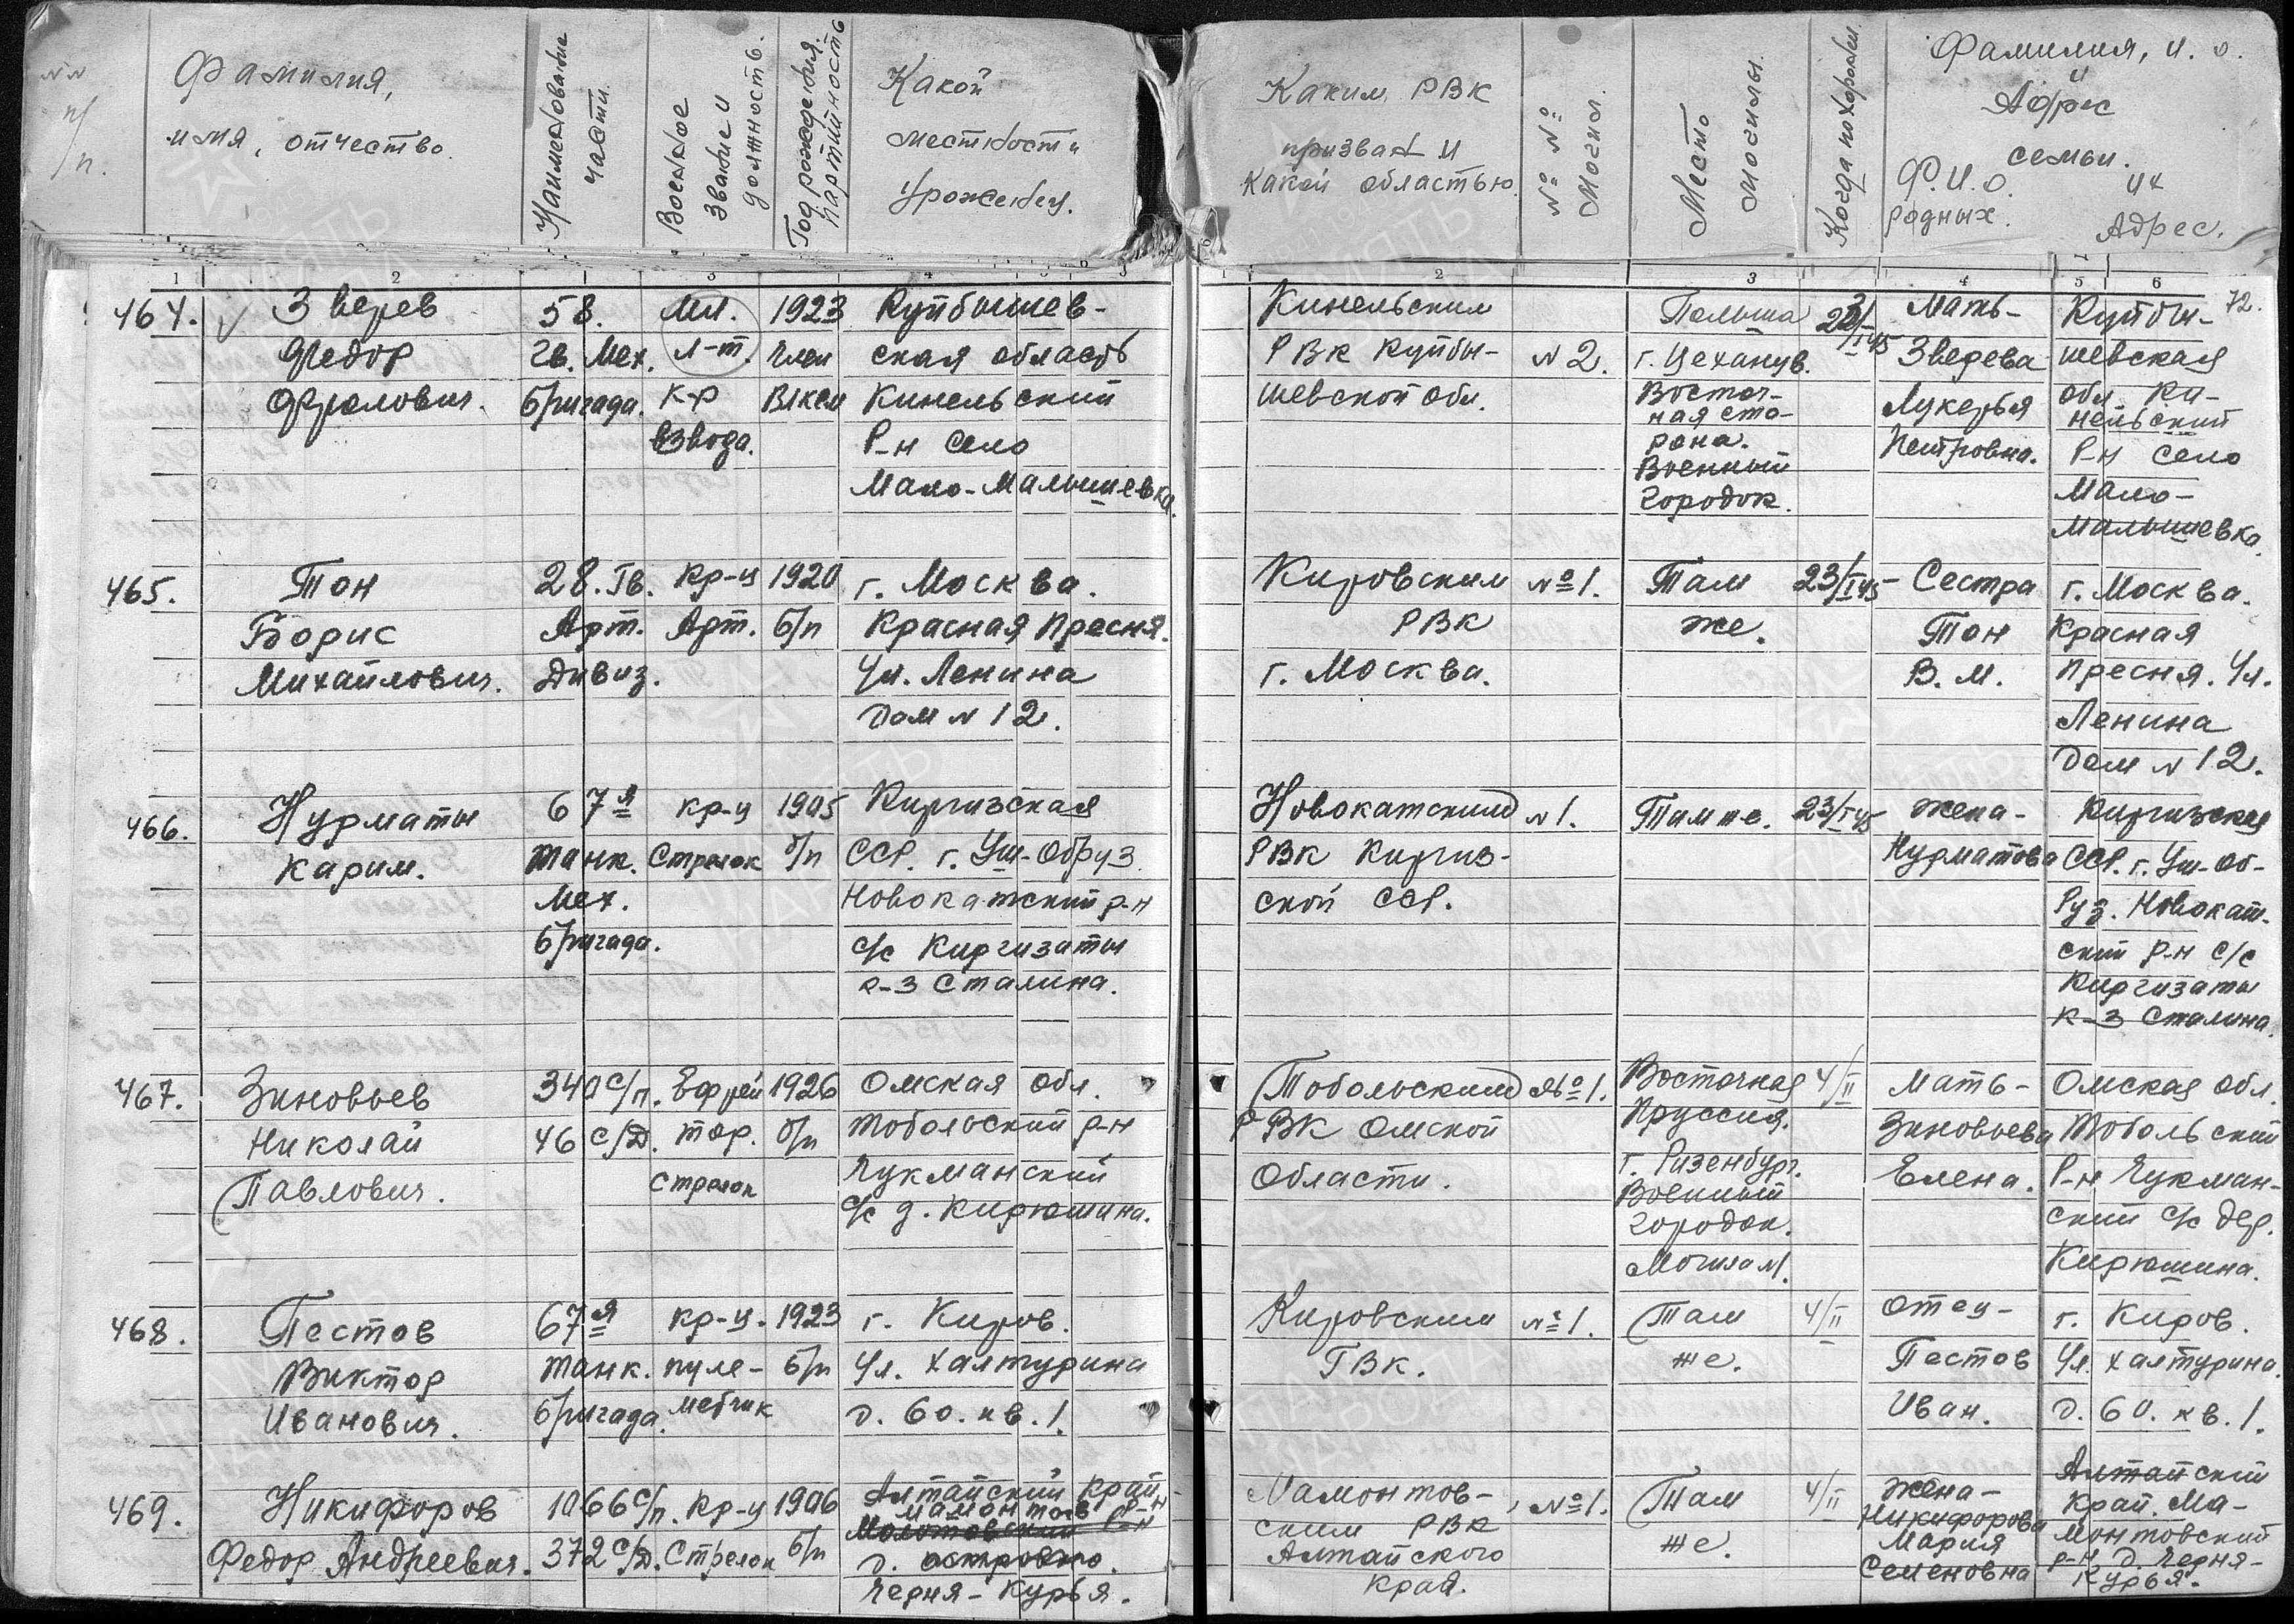 №№ п/п.
Фамилия,
имя, отчество
Наименование части.
Военное звание и должность.
Год рождения. Партийность
Какой
местности
Уроженец.
Каким РВК
призван и
какой областью.
№ № Могил.
Место Могилы.
Когда похоронен.
Фамилия, и. о.
и
Адрес
семьи.
Ф.И.О. их
родных. Адрес.
1 2 3 4 5 6
2 3 4 5 6
72.
464. Зверев
Федор
Фролович.
58.
Гв. Мех.
бригада.
Мл.
л-т.
к-р
взвода.
1923
член
ВЛКСМ
Куйбышев-
ская область
Кинельский
Р-н село
Мало-Малышевка.
Кинельским
РВК Куйбы-
шевской обл.
№2.
Польша
г. Цеханув.
Восточ-
ная сто-
рона.
Военный
городок.
Мать-
Зверева
Лукерья
Петровна.
Куйбы-
шевская
обл. Ки-
нельский
Р-н село
Мало-
Малышевка.
465. Тон
Борис
Михайлович.
28. Гв.
Арт.
Дивиз.
Кр-ц
Арт.
1920
б/п
г. Москва.
Красная Пресня.
Ул. Ленина
Дом № 12.
Кировским
РВК
г. Москва.
№1.
Там
же.
23/I 45
Сестра
Тон
В. М.
г. Москва.
Красная
Пресня. Ул.
Ленина
Дом № 12.
466. Нурматы
Карим.
67я
танк.
Мех.
бригада.
кр-ц
Стрелок
1905
б/п
Киргизская
ССР. г. Уш-Обруз
Новокатский р-н
с/с Киргизаты
к-з Сталина.
Новокатским
РВК Киргиз-
ской ССР.
№1.
Там же.
23/I 45
жена-
Нурматова
Киргизская
ССР. г. Уш-Об-
руз. Новокат-
ский р-н с/с
Киргизаты
к-з Сталина.
467. Зиновьев
Николай
Павлович.
340 с/п.
46 с/д.
Ефрей
тор.
Стрелок
1926
б/п
Омская обл.
Тобольский р-н
Чукманский
с/с д. Кирюшина.
Тобольским
РВК Омской
Области.
№1.
Восточная
Пруссия.
г. Ризенбург.
Военный
городок.
Могила №1.
4/II
Мать-
Зиновьева
Елена.
Омская обл.
Тобольский
Р-н Чукман-
ский с/с дер.
Кирюшина.
468. Пестов
Виктор
Иванович.
67я
танк.
бригада.
кр-ц.
пуле-
метчик
1923
б/п
г. Киров.
Ул. Халтурина
д. 60. кв. 1.
Кировским
ГВК.
№1.
Там
же.
4/II
отец-
Пестов
Иван.
г. Киров.
Ул. Халтурина.
д. 60. кв. 1.
469. Никифоров
Федор Андреевич.
1066 с/п.
372 с/д.
Кр-ц
Стрелок
1906
б/п
Алтайский край-
Мамонтов р-н
д.
Черня-Курья.
Мамонтов-
ским РВК
Алтайского
края.
№1.
Там
же.
4/II
жена-
Никифорова
Мария
Семеновна
Алтайский
край. Ма-
монтовский
р-н д. Черня-
Курья.